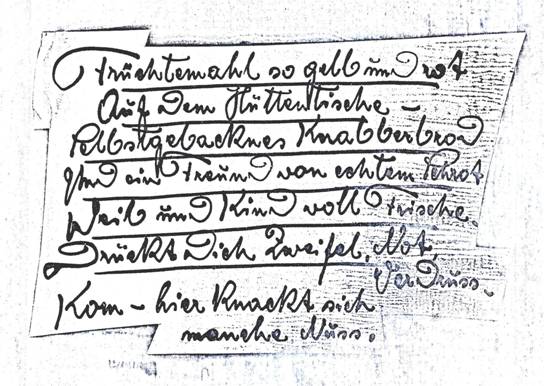 Früchtemahl so gelb und rot
Auf dem Hüttentische –
Selbstgebacknes Knabberbrod
Und ein Freund von echtem Schrot
Weib und Kind voll Frische.
Drückt Dich Zweifel, Not,
Verdruss –
Kom – hier knackt sich
manche Nuss.